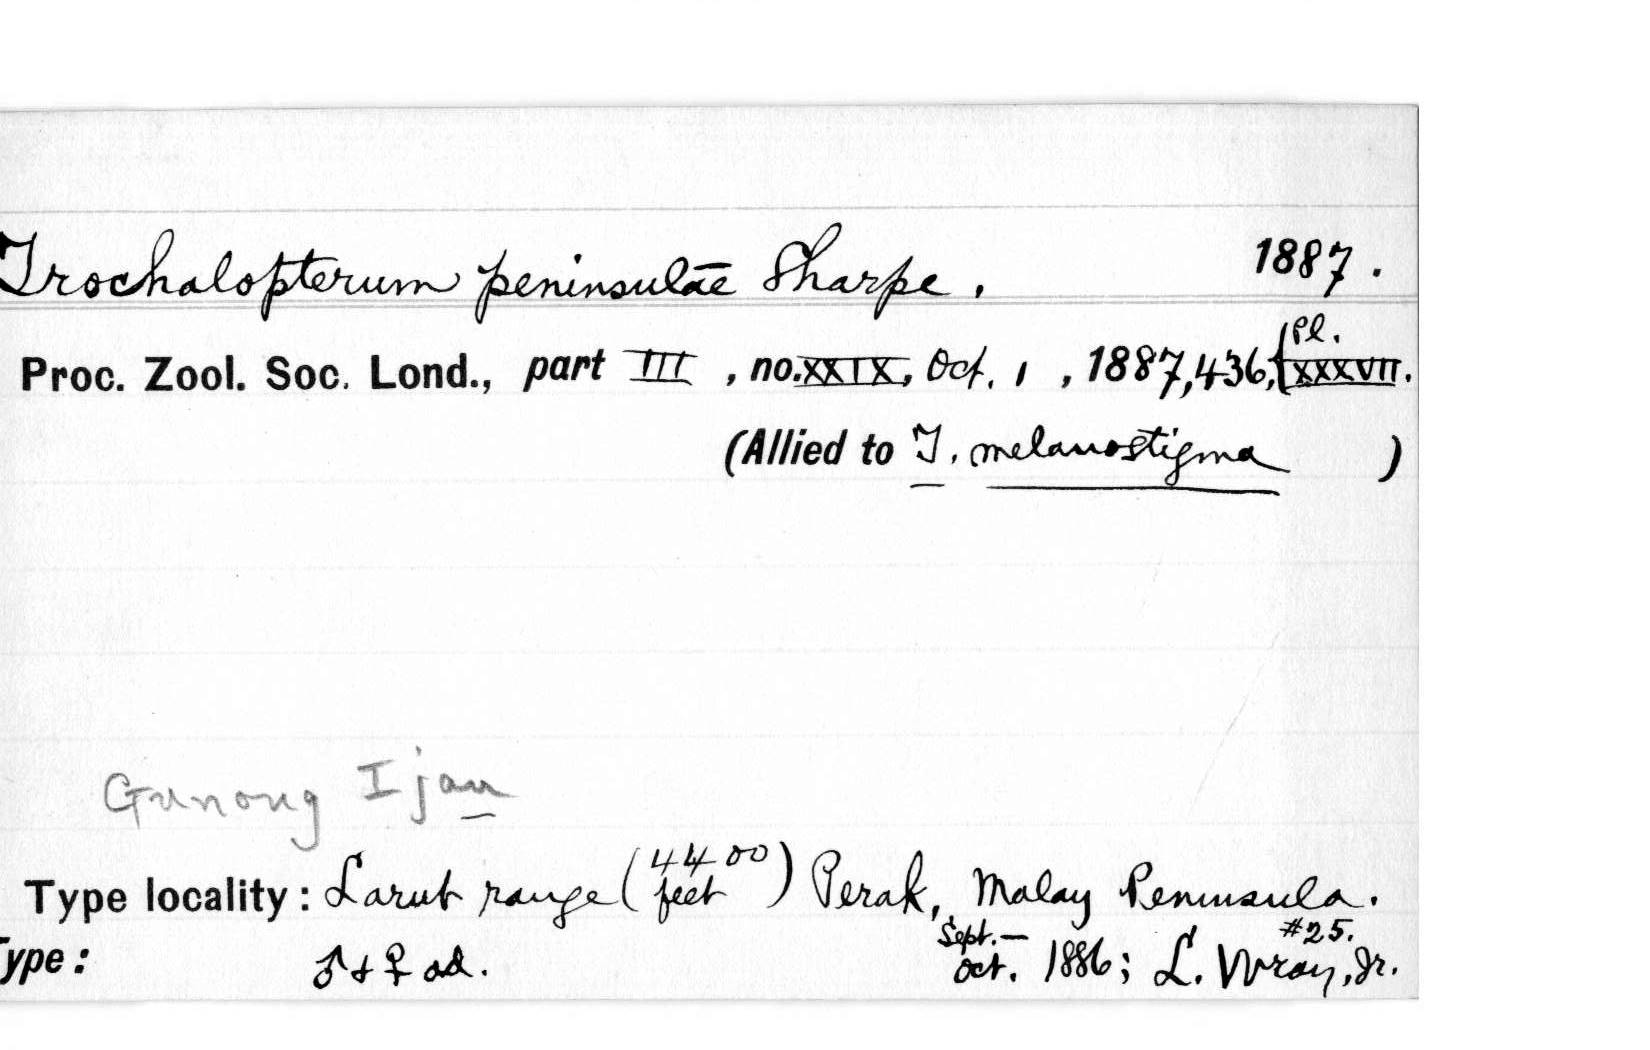 Trochalopterum peninsulae Sharpe. 1887.
Proc. Zool. Soc. Lond., part III, no. XXIX, Oct. 1, 1887, 436, {Pl. XXXVII.
(Allied to T. melanostigma )
Gunong Ijau
Type locality: Larut range (4400 feet) Perak, Malay Peninsula.
Type: ♂ + ♀ ad. Sept.– Oct. 1886; L. Wray, Jr. #25.